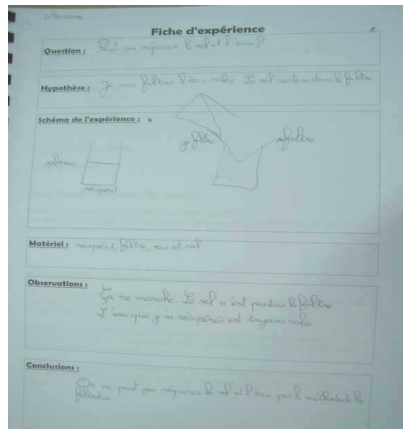 Fiche d'expérience
Question : Peut-on séparer le sel et l'eau ?
Hypothèse : Je vais filtrer l'eau salée. Le sel restera dans le filtre
Schéma de l'expérience :
je filtre filtre
sel eau
récipient
Matériel : récipient, filtre, eau et sel
Observations :
Ça ne marche. Le sel n'est pas dans le filtre
L'eau que j'ai récupérée est toujours salée
Conclusions :
On ne peut pas séparer le sel et l'eau par la méthode de la
filtration